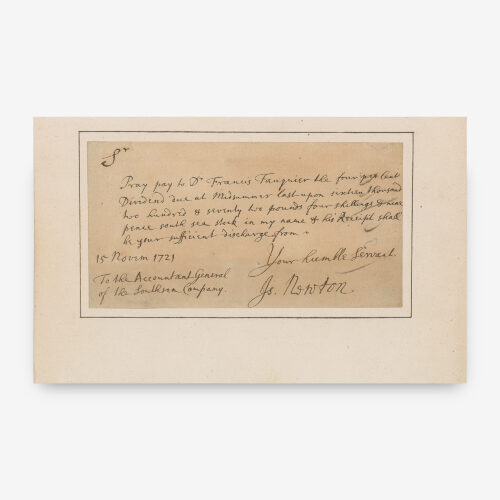 Sr
Pray pay to Dr Francis Fauquier the four per Cent
Dividend due at Midsummer last upon sixteen thousand
two hundred & seventy two pounds four shillings & nine
pence south sea stock in my name & his Receipt shall
be your sufficient discharge from
Your humble Servant.
15 Novem 1721
Is. Newton.
To the Accountant General
of the Southsea Company.